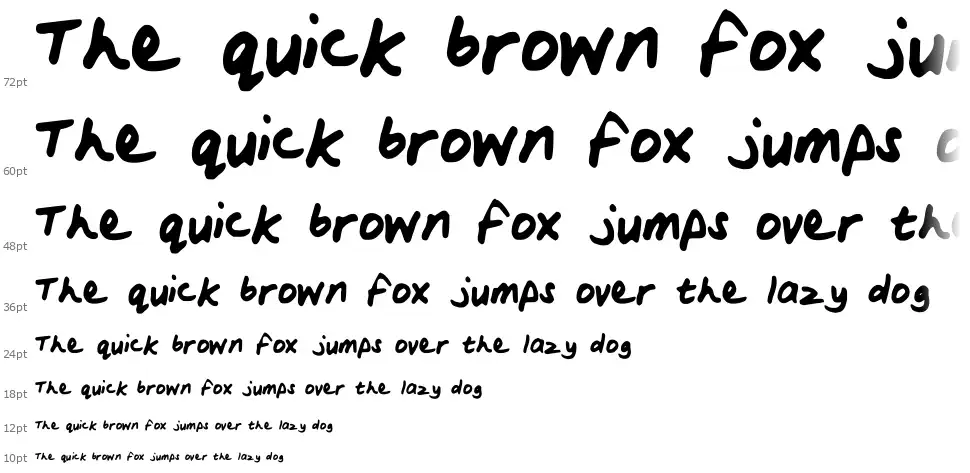 The quick brown fox ju
72pt
The quick brown fox jumps
60pt
The quick brown fox jumps over th
48pt
The quick brown fox jumps over the lazy dog
36pt
The quick brown fox jumps over the lazy dog
24pt
The quick brown fox jumps over the lazy dog
18pt
The quick brown fox jumps over the lazy dog
12pt
The quick brown fox jumps over the lazy dog
10pt